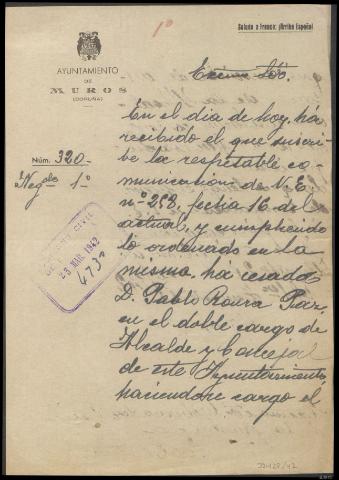 1º
Saludo a Franco: ¡Arriba España!
AYUNTAMIENTO
DE
MUROS
(CORUÑA)
Excmo. Sr.
En el dia de hoy, ha
recibido el que suscri-
be la respetable co-
municación de V.E.
nº 258, fecha 16 del
actual, y cumpliendo
lo ordenado en la
misma, ha cesado
D. Pablo Roura Paz
en el doble cargo de
Alcalde y Concejal
de este Ayuntamiento
haciendose cargo el
Núm. 320-
Negdo 1º
CIVIL
23 MAR. 1942